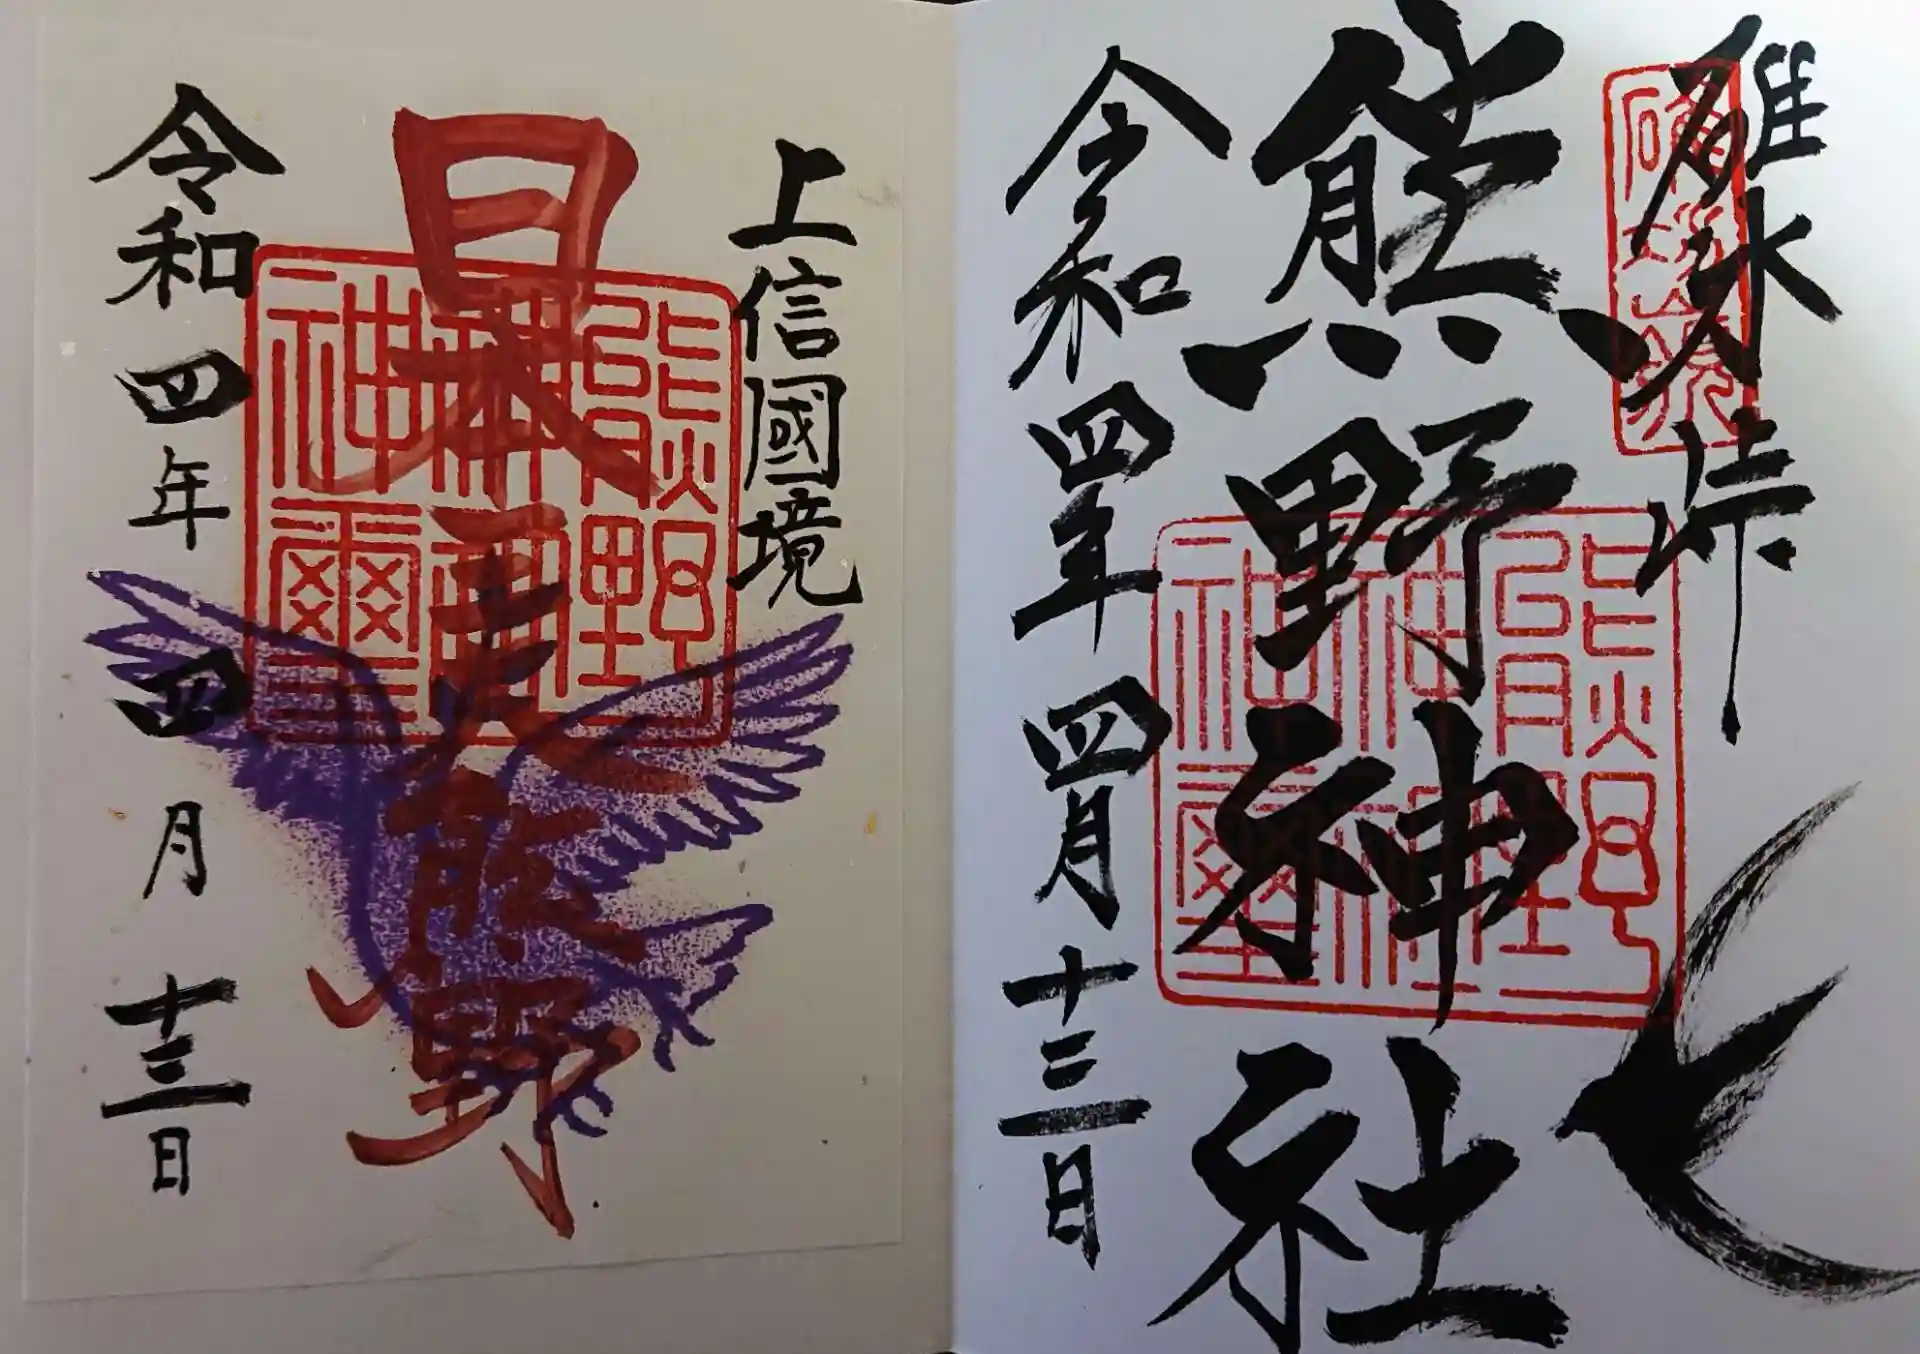 碓氷峠
熊野神社
令和四年四月十三日
上信國境
日本三大熊野
令和四年四月十三日